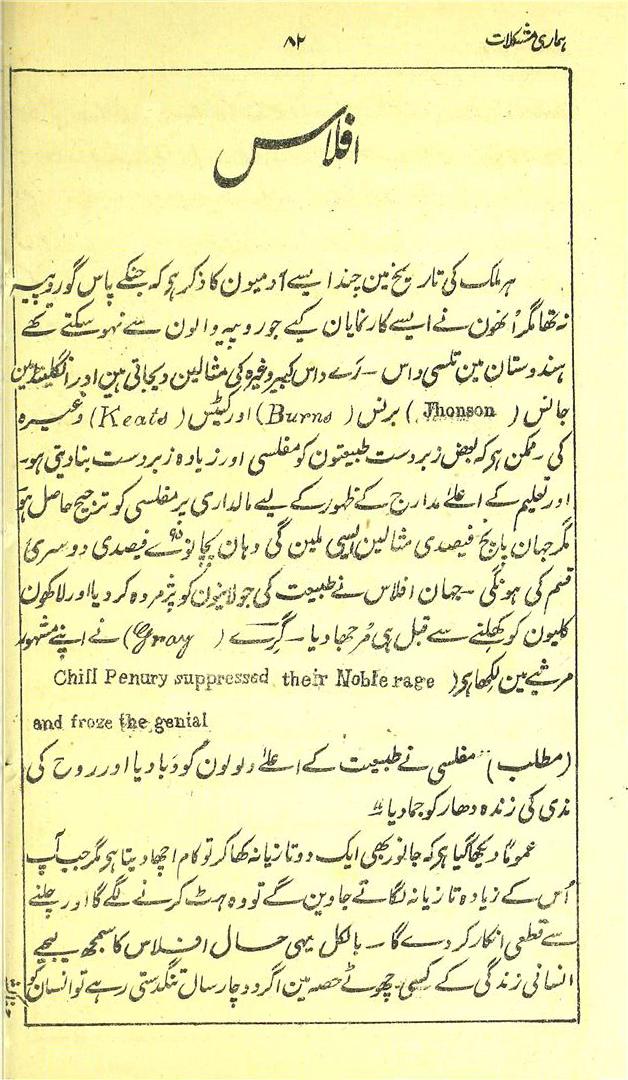 ہماری مشکلات ۸۲
افلاس
ہر ملک کی تاریخ مین چند ایسے آدمیون کا ذکر ہو کہ جنکے پاس گو روپیہ
نہ تھا مگر اُنھون نے ایسے کار نمایان کیے جو روپیہ والون سے نہو سکتے تھے
ہندوستان مین تلسی داس ۔ رے داس کبیر وغیرہ کی مثالین دیجاتی ہین اور انگلینڈ مین
جانس (Jhonson) برنس (Burns) اور کیٹس (Keats) وغیرہ
کی ۔ ممکن ہو کہ بعض زبردست طبیعتون کو مفلسی اور زیادہ زبردست بنا دیتی ہو ۔
اور تعلیم کے اعلےٰ مدارج کے ظہور کے لیے مالداری پر مفلسی کو ترجیح حاصل ہو
مگر جہان پانچ فیصدی مثالین ایسی ملین گی وہان پچانوے ۹۵ فیصدی دوسری
قسم کی ہونگی ۔ جہان افلاس نے طبیعت کی جولانیون کو پژمردہ کر دیا اور لاکھون
کلیون کو کھلنے سے قبل ہی مُرجھا دیا ۔ گرے (Gray) نے اپنے مشہور
مرثیے مین لکھا ہی (Chill Penury suppressed their Noble rage
and froze the genial
(مطلب) "مفلسی نے طبیعت کے اعلےٰ ولولون کو دَبا دیا اور روح کی
ندی کی زندہ دھار کو جما دیا"
عموماً دیکھا گیا ہو کہ جانور بھی ایک دو تازیانہ کھا کر تو کام اچھا دیتا ہو مگر جب آپ
اُس کے زیادہ تازیانہ لگائے جاوین گے تو وہ ہٹ کرنے لگے گا اور چلنے
سے قطعی انکار کر دے گا ۔ بالکل یہی حال افلاس کا سمجھ لیجیے
انسانی زندگی کے کسی چھوٹے حصہ مین اگر دو چار سال تنگدستی رہے تو انسان کو